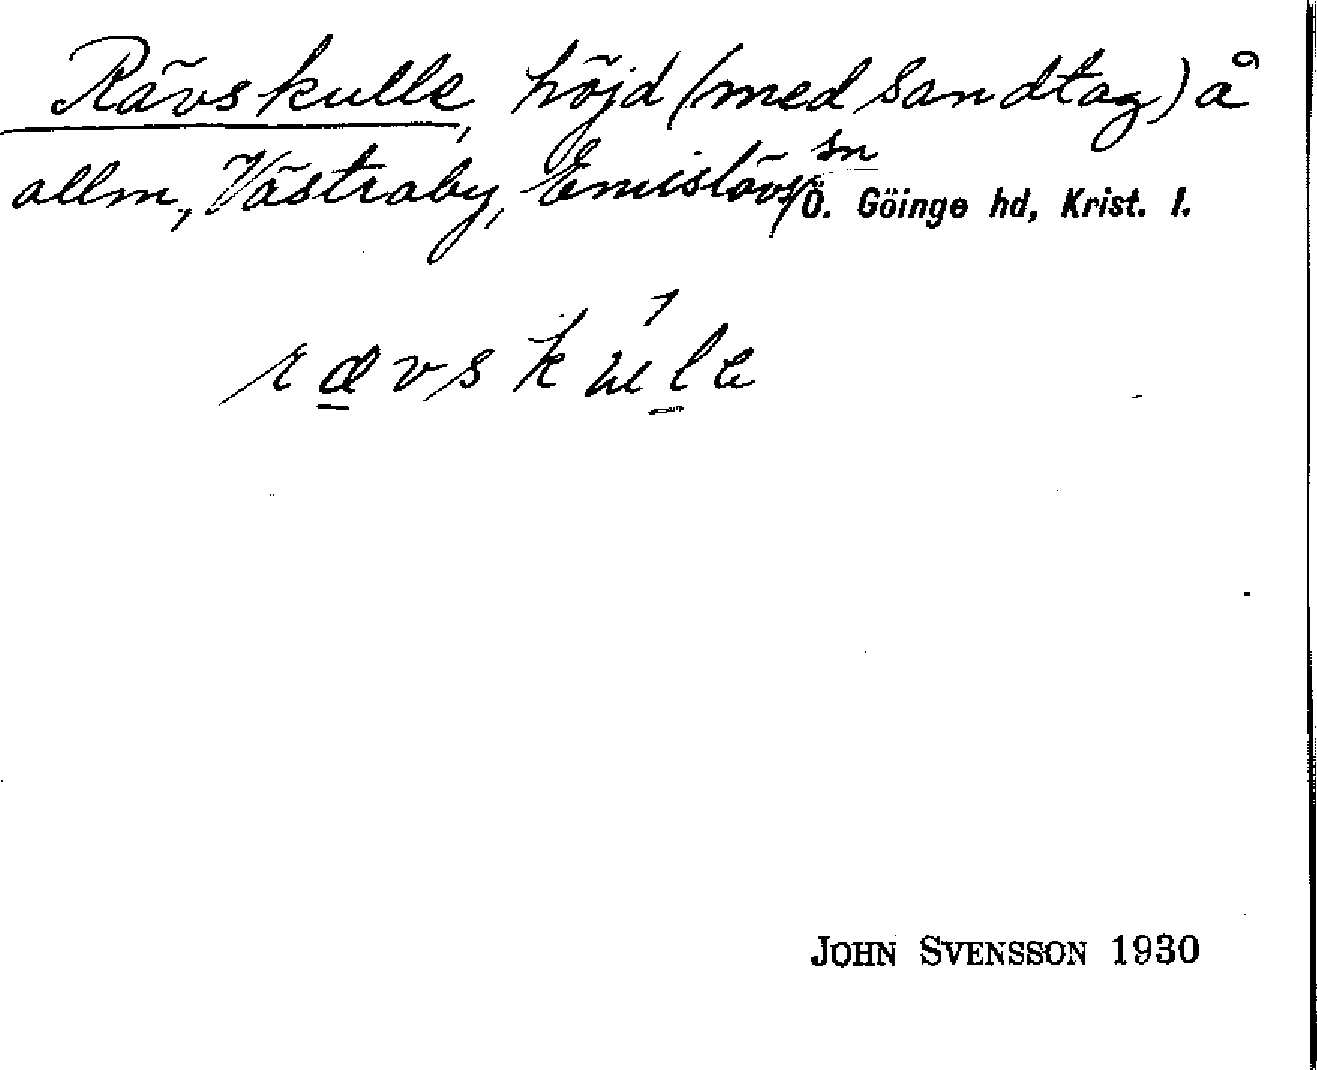 Rävskulle, höjd (med sandtag) å
allm, Västraby, Emislövs sn Ö. Göinge hd, Krist. l.
rævskule
JOHN SVENSSON 1930